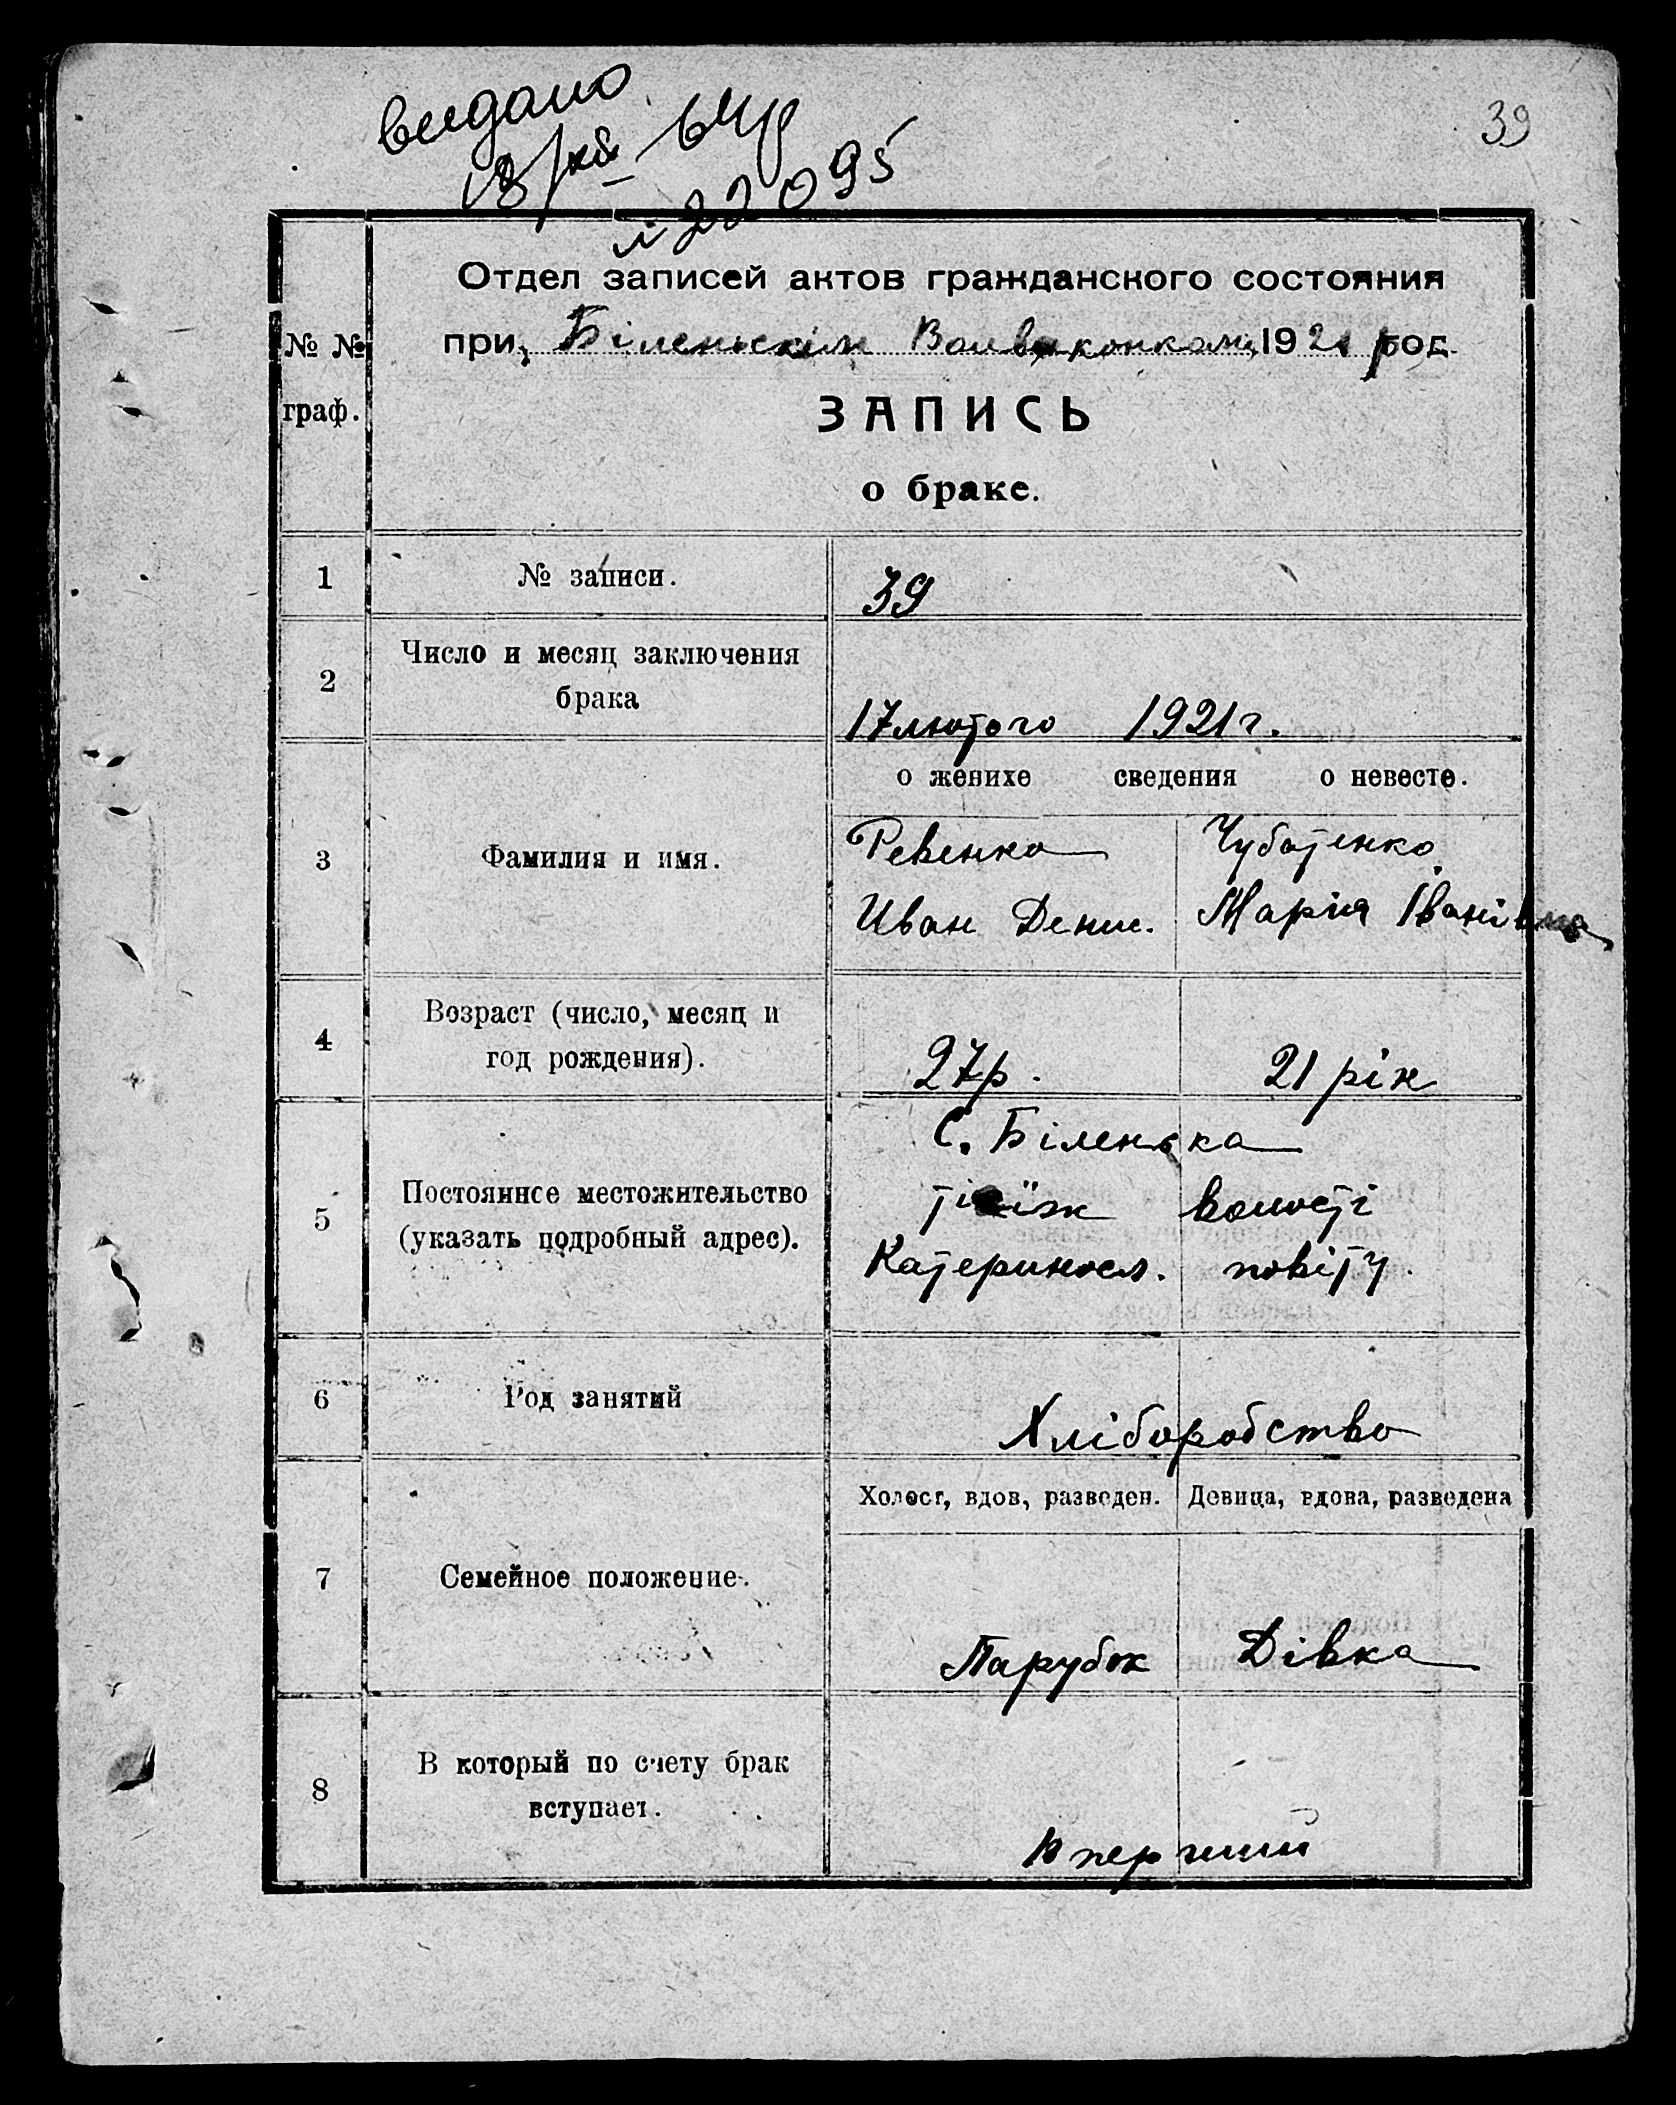 видано
64р
№ 22095
39
Отдел записей актов гражданского состояния
при Біленьскім Волвиконкомі 1921 год
№ №
граф.
ЗАПИСЬ
о браке.
1 № записи. 39
2 Число и месяц заключения
брака
17 лютого 1921 г.
о женихе сведения о невесте.
3 Фамилия и имя.
Ревенко Чубатенко
Иван Денис. Марія Іванівна
4 Возраст (число, месяц и
год рождения).
27 р. 21 рік
С. Біленька
5 Постоянное местожительство
(указать подробный адрес).
тіїж волості
Катериносл. повіту.
6 Род занятий
Хліборобство
Холост, вдов, разведен. Девица, вдова, разведена
7 Семейное положение.
Парубок Дівка
8 В который по счету брак
вступает.
В перший